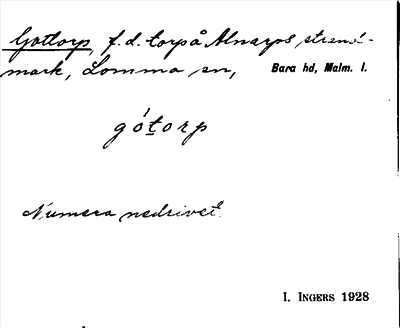 Gottorp, f.d. torp å Alnarps strand-
mark, Lomma sn, Bara hd, Malm. l.
gótorp
Numera nedrivet.
I. INGERS 1928